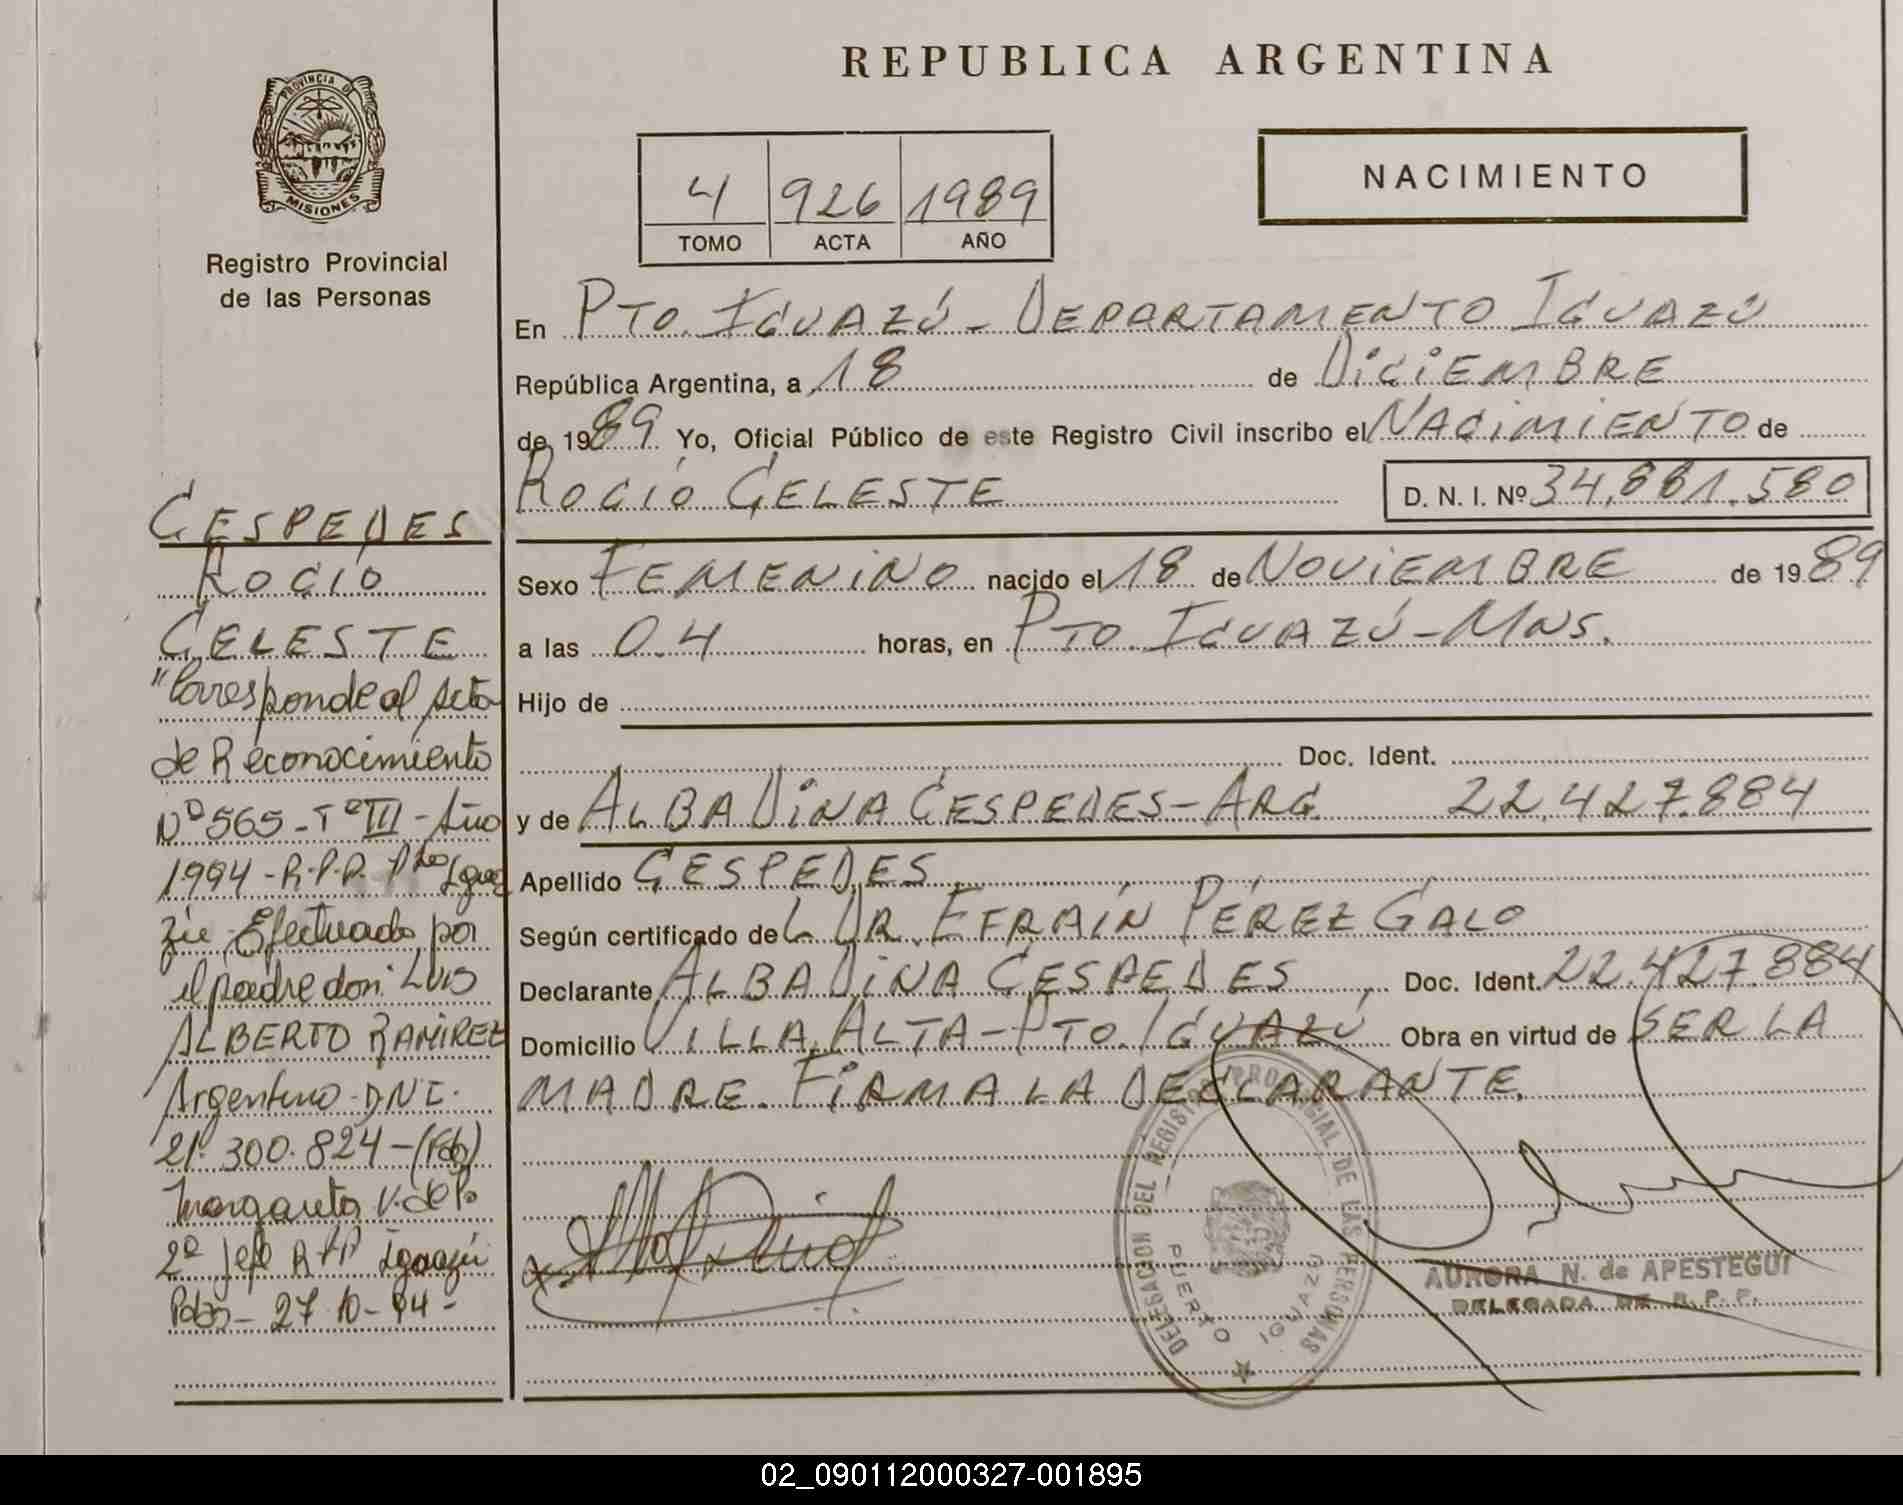 REPUBLICA ARGENTINA
PROVINCIA D
MISIONES
Registro Provincial
de las Personas
4 926 1989
TOMO ACTA AÑO
NACIMIENTO
En PTO. IGUAZÚ - DEPARTAMENTO IGUAZÚ
República Argentina, a 18 de DICIEMBRE
de 1989 Yo, Oficial Público de este Registro Civil inscribo el NACIMIENTO de
ROCIO CELESTE D. N. I. Nº 34.881.580
Sexo FEMENINO nacido el 18 de NOVIEMBRE de 1989
a las 0.4 horas, en PTO. IGUAZÚ - MNS.
Hijo de
Doc. Ident.
y de ALBA DINA CESPEDES - ARG. 22.427.884
Apellido CESPEDES
Según certificado de L DR. EFRAÍN PÉREZ GALO
Declarante ALBA DINA CESPEDES, Doc. Ident. 22.427.884
Domicilio VILLA ALTA - PTO. IGUAZÚ Obra en virtud de SER LA
MADRE. FIRMA LA DECLARANTE.
CESPEDES
ROCÍO
CELESTE
"Corresponde al Acta
de Reconocimiento
Nº 565 - Tº III - Año
1994 - R.P.P. Pto Igua
zú - Efectuado por
el padre don: LUIS
ALBERTO RAMIREZ
Argentino - DNI.
21.300.824 - (Fdo)
Margarita V. de
2º Jefe RPP Iguazú
27-10-94 -
DELEGACION DEL REGISTRO PROVINCIAL DE LAS PERSONAS
PUERTO IGUAZU
AURORA N. de APESTEGUI
DELEGADA DE R. P. P.
02_090112000327-001895